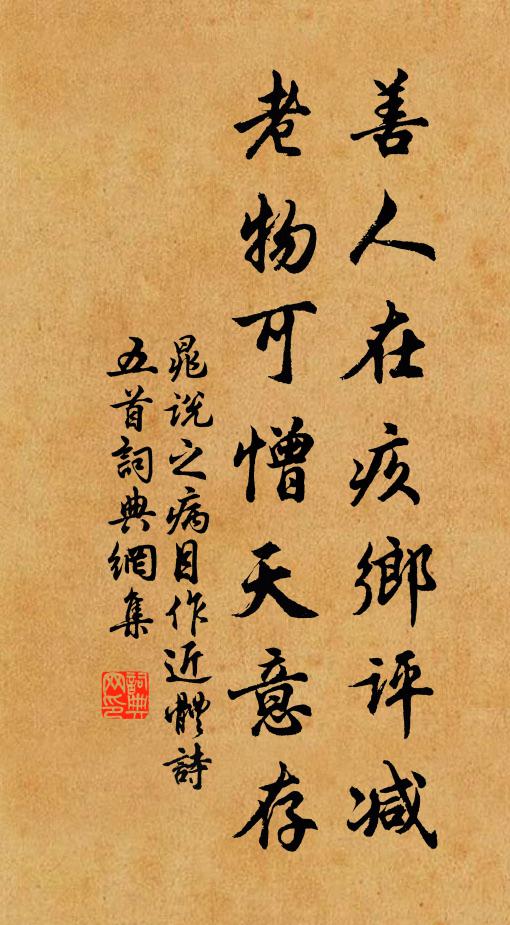 善人在疚鄉評減
老物可憎天意存
晁說之病目作近體詩
五首詞典網集
詞典网印